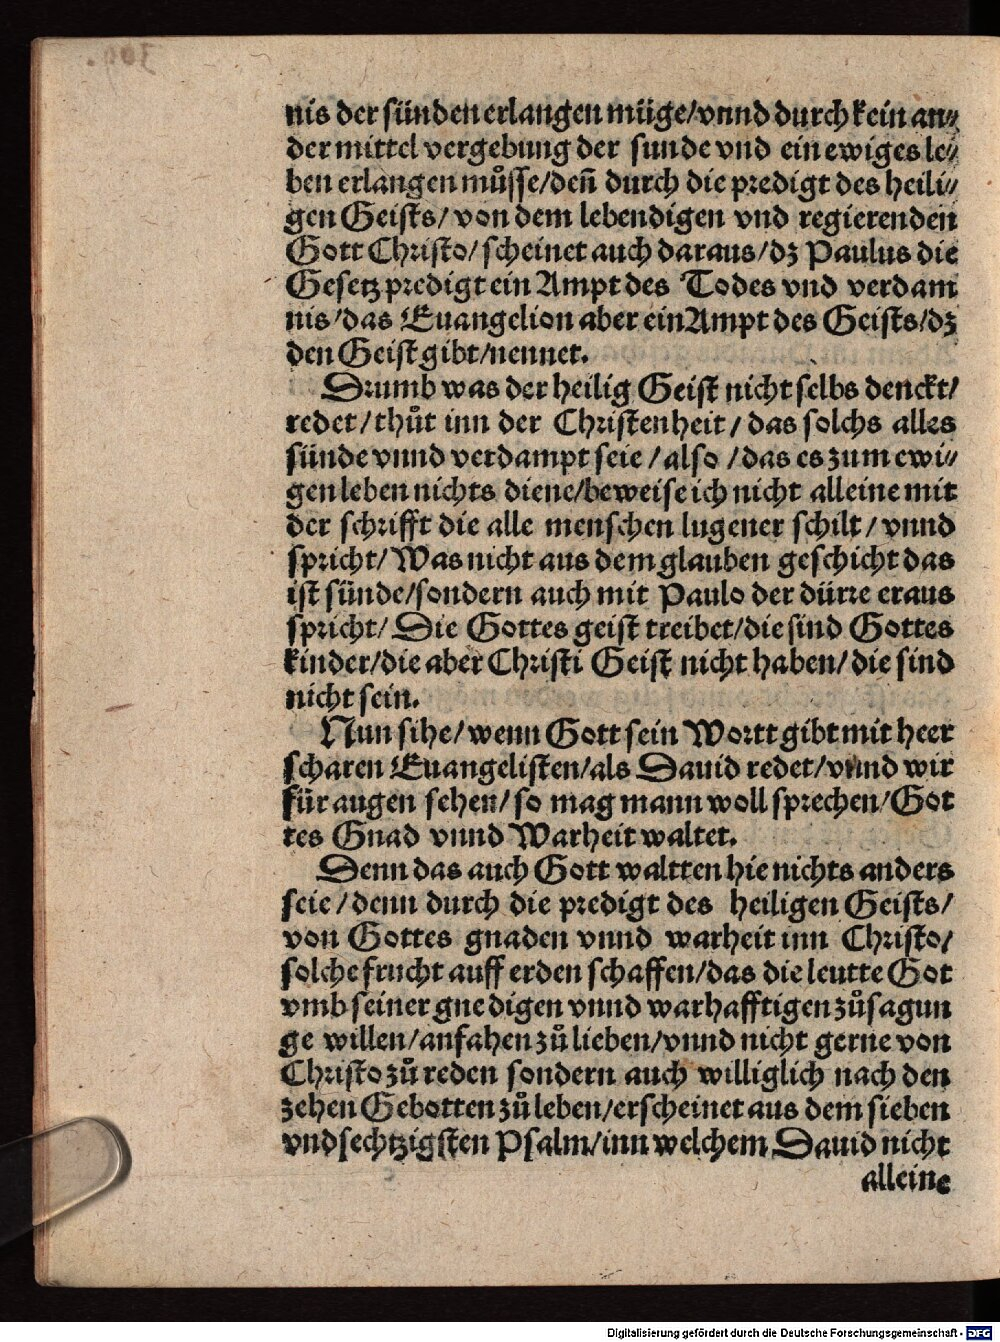 nis der sünden erlangen müge/vnnd durch kein an⸗
der mittel vergebung der sunde vnd ein ewiges le⸗
ben erlangen můsse/deñ durch die predigt des heili⸗
gen Geists/von dem lebendigen vnd regierenden
Gott Christo/scheinet auch daraus/dz Paulus die
Gesetz predigt ein Ampt des Todes vnd verdam
nis/das Euangelion aber ein Ampt des Geists/dz
den Geist gibt/nennet.
Drumb was der heilig Geist nicht selbs denckt/
redet/thůt inn der Christenheit/das solchs alles
sünde vnnd verdampt seie/also/das es zum ewi⸗
gen leben nichts diene/beweise ich nicht alleine mit
der schrifft die alle menschen lugener schilt/vnnd
spricht/Was nicht aus dem glauben geschicht das
ist sünde/sondern auch mit Paulo der dürre eraus
spricht/Die Gottes geist treibet/die sind Gottes
kinder/die aber Christi Geist nicht haben/die sind
nicht sein.
Nun sihe/wenn Gott sein Wortt gibt mit heer
scharen Euangelisten/als Dauid redet/vnnd wir
für augen sehen/so mag mann woll sprechen/Got
tes Gnad vnnd Warheit waltet.
Denn das auch Gott waltten hie nichts anders
seie/denn durch die predigt des heiligen Geists/
von Gottes gnaden vnnd warheit inn Christo/
solche frucht auff erden schaffen/das die leutte Got
vmb seiner gnedigen vnnd warhafftigen zůsagun
ge willen/anfahen zů lieben/vnnd nicht gerne von
Christo zů reden sondern auch williglich nach den
zehen Gebotten zů leben/erscheinet aus dem sieben
vndsechtzigsten Psalm/inn welchem Dauid nicht
alleine
Digitalisierung gefördert durch die Deutsche Forschungsgemeinschaft - DFG